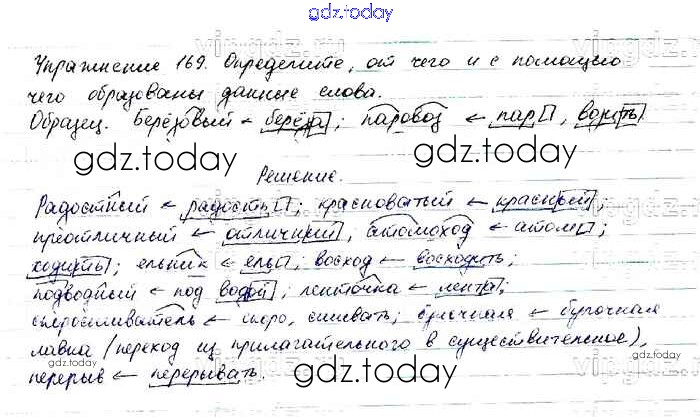 gdz.today
Упражнение 169. Определите, от чего и с помощью
чего образованы данные слова.
Образец. Берёзовый ← берёза; паровоз ← пар, возить
gdz.today gdz.today
Решение.
Радостный ← радость; красноватый ← красный;
преотличный ← отличный, атомоход ← атом,
ходить; ельник ← ель, восход ← восходить;
подводный ← под водой; ленточка ← лента;
скоросшиватель ← скоро, сшивать; булочная ← булочная
лавка (переход из прилагательного в существительное),
перерыв ← перерывать.
gdz.today gdz.today gdz.today